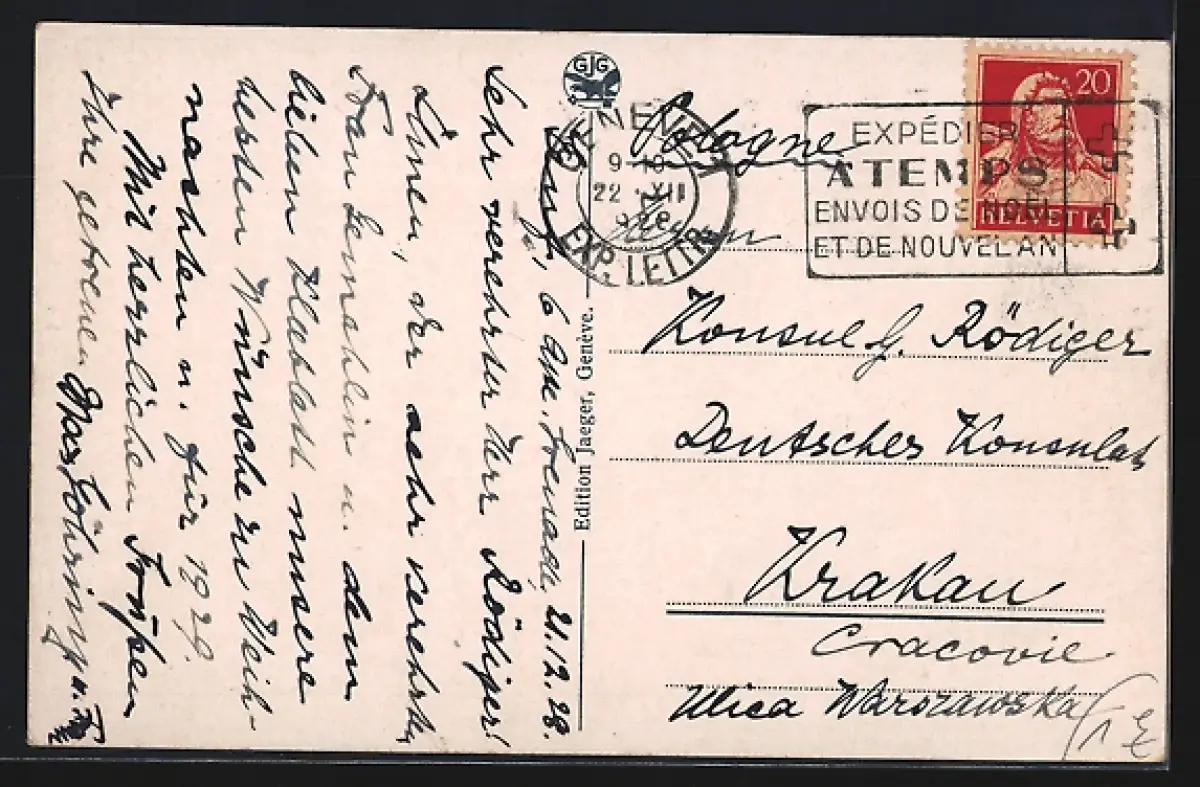 Genf, 6 Ave. 21.12.28.
Sehr verehrter Herr Rödiger!
Ihnen, der sehr verehrten
Frau Gemahlin u. dem
lieben unsere
besten Wünsche zu Weih-
nachten u. für 1929.
Mit herzlichen Grüßen
Ihre
Edition Jaeger, Genève.
GJG
9-10
22.XII
EXP. LETTR
EXPÉDIER
A TEMPS
ENVOIS DE NOËL
ET DE NOUVEL AN
20
HELVETIA
Pologne
Herrn
Konsul G. Rödiger
Deutsches Konsulat
Krakau
Cracovie
Ulica Warszawska